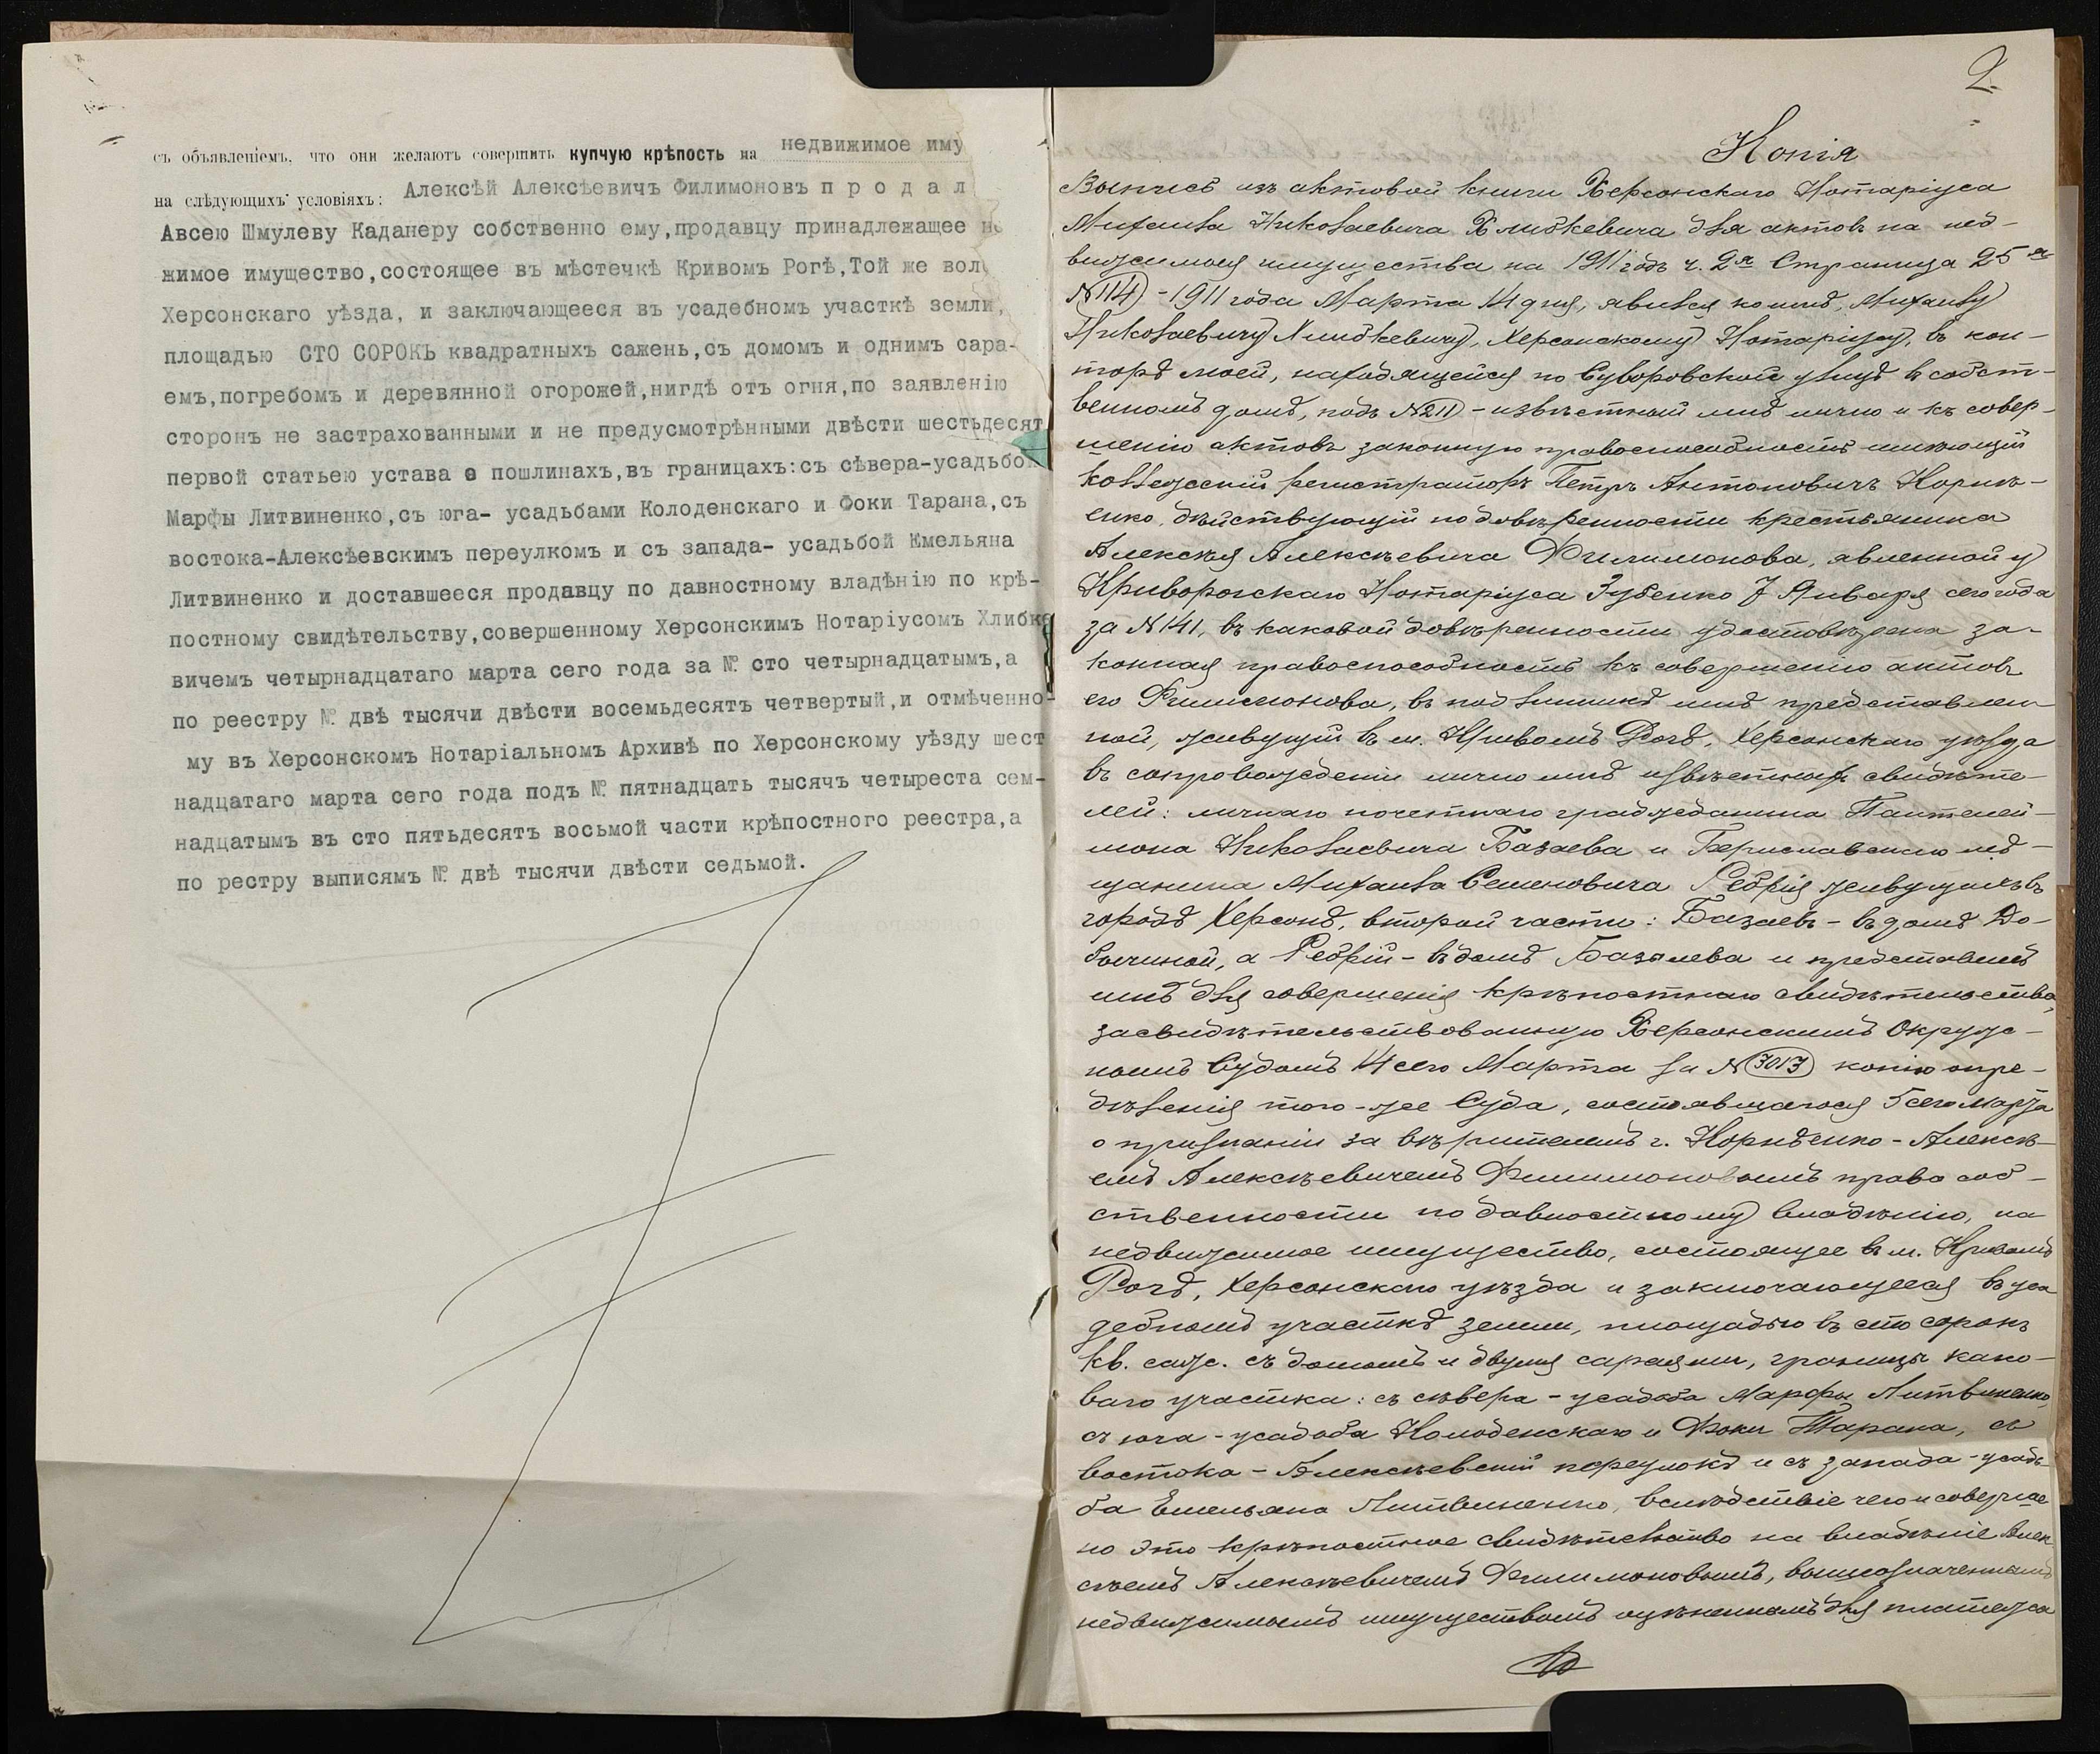 съ объявленіемъ, что они желаютъ совершить купчую крѣпость на недвижимое иму
на слѣдующихъ условіяхъ: Алексѣй Алексѣевичъ Филимоновъ п р о д а л
Авсею Шмулеву Каданеру собственно ему,продавцу принадлежащее не
жимое имущество,состоящее въ мѣстечкѣ Кривомъ Рогѣ,Той же вол
Херсонскаго уѣзда, и заключающееся въ усадебномъ участкѣ земли,
площадью СТО СОРОКЪ квадратныхъ сажень,съ домомъ и однимъ сара-
емъ,погребомъ и деревянной огорожей,нигдѣ отъ огня,по заявленію
сторонъ не застрахованными и не предусмотрѣнными двѣсти шестьдесят
первой статьею устава о пошлинахъ,въ границахъ:съ сѣвера-усадьбо
Марфы Литвиненко,съ юга- усадьбами Колоденскаго и Фоки Тарана,съ
востока-Алексѣевскимъ переулкомъ и съ запада- усадьбой Емельяна
Литвиненко и доставшееся продавцу по давностному владѣнію по крѣ-
постному свидѣтельству,совершенному Херсонскимъ Нотаріусомъ Хлибке
вичемъ четырнадцатаго марта сего года за № сто четырнадцатымъ,а
по реестру № двѣ тысячи двѣсти восемьдесятъ четвертый,и отмѣченно-
му въ Херсонскомъ Нотаріальномъ Архивѣ по Херсонскому уѣзду шест
надцатаго марта сего года подъ № пятнадцать тысячъ четыреста сем-
надцатымъ въ сто пятьдесятъ восьмой части крѣпостного реестра,а
по рестру выписямъ № двѣ тысячи двѣсти седьмой.
2.
Копія
Выпись изъ актовой книги Херсонскаго Нотаріуса
Михаила Николаевича Хлибкевича для актовъ на нед-
вижимыя имущества на 1911 годъ ч. 2я Страница 25я
№ 114 - 1911 года Марта 14 дня, явился ко мнѣ, Михаилу
Николаевичу Хлибкевичу, Херсонскому Нотаріусу, въ кон-
торѣ моей, находящейся по Суворовской улицѣ въ собст-
венномъ домѣ, подъ № 211 - извѣстный мнѣ лично и къ совер-
шенію актовъ законную правоспособность имѣющій
коллежскій регистраторъ Петръ Антоновичъ Корнѣ-
енко, дѣйствующій по довѣренности крестьянина
Алексѣя Алексѣевича Филимонова, явленной у
Криворогскаго Нотаріуса Зубенко 7 Января сего года
за № 141, въ каковой довѣренности удостовѣрена за-
конная правоспособность къ совершенію актовъ
его Филимонова, въ подлинникѣ мнѣ представлен-
ной, живущій въ м. Кривомъ Рогѣ, Херсонскаго уѣзда
въ сопровожденіи лично мнѣ извѣстныхъ свидѣте-
лей: личнаго почетнаго гражданина Пантелей-
мона Николаевича Базаева и Бериславскаго мѣ-
щанина Михаила Семеновича Ребрія живущихъ въ
городѣ Херсонѣ, второй части: Базаевъ - въ домѣ До-
бычиной, а Ребрій - въ домѣ и представилъ
мнѣ для совершенія крѣпостнаго свидѣтельства,
засвидѣтельствованную Херсонскимъ Окруж-
нымъ Судомъ 14 сего Марта за № 3013 копію опре-
дѣленія того-же Суда, состоявшагося 5 сего марта
о признаніи за вѣрителемъ г. Корнѣенко - Алексѣ-
емъ Алексѣевичемъ Филимоновымъ права соб-
ственности по давностному владѣнію, на
недвижимое имущество, состоящее въ м. Кривомъ
Рогѣ, Херсонскаго уѣзда и заключающееся въ уса
дебномъ участкѣ земли, площадью въ сто сорокъ
кв. саж. съ домомъ и двумя сараями, границы како-
ваго участка: съ сѣвера - усадьба Марфы Литвиненко,
съ юга - усадьба Колоденскаго и Фоки Тарана, съ
востока - Алексѣевскій переулокъ и съ запада - усадь-
ба Емельяна Литвиненко, вслѣдствіе чего и соверше
но это крѣпостное свидѣтельство на владѣніе Алек-
сѣемъ Алексѣевичемъ Филимоновымъ, вышеозначеннымъ
недвижимымъ имуществомъ оцѣненнымъ для платежа